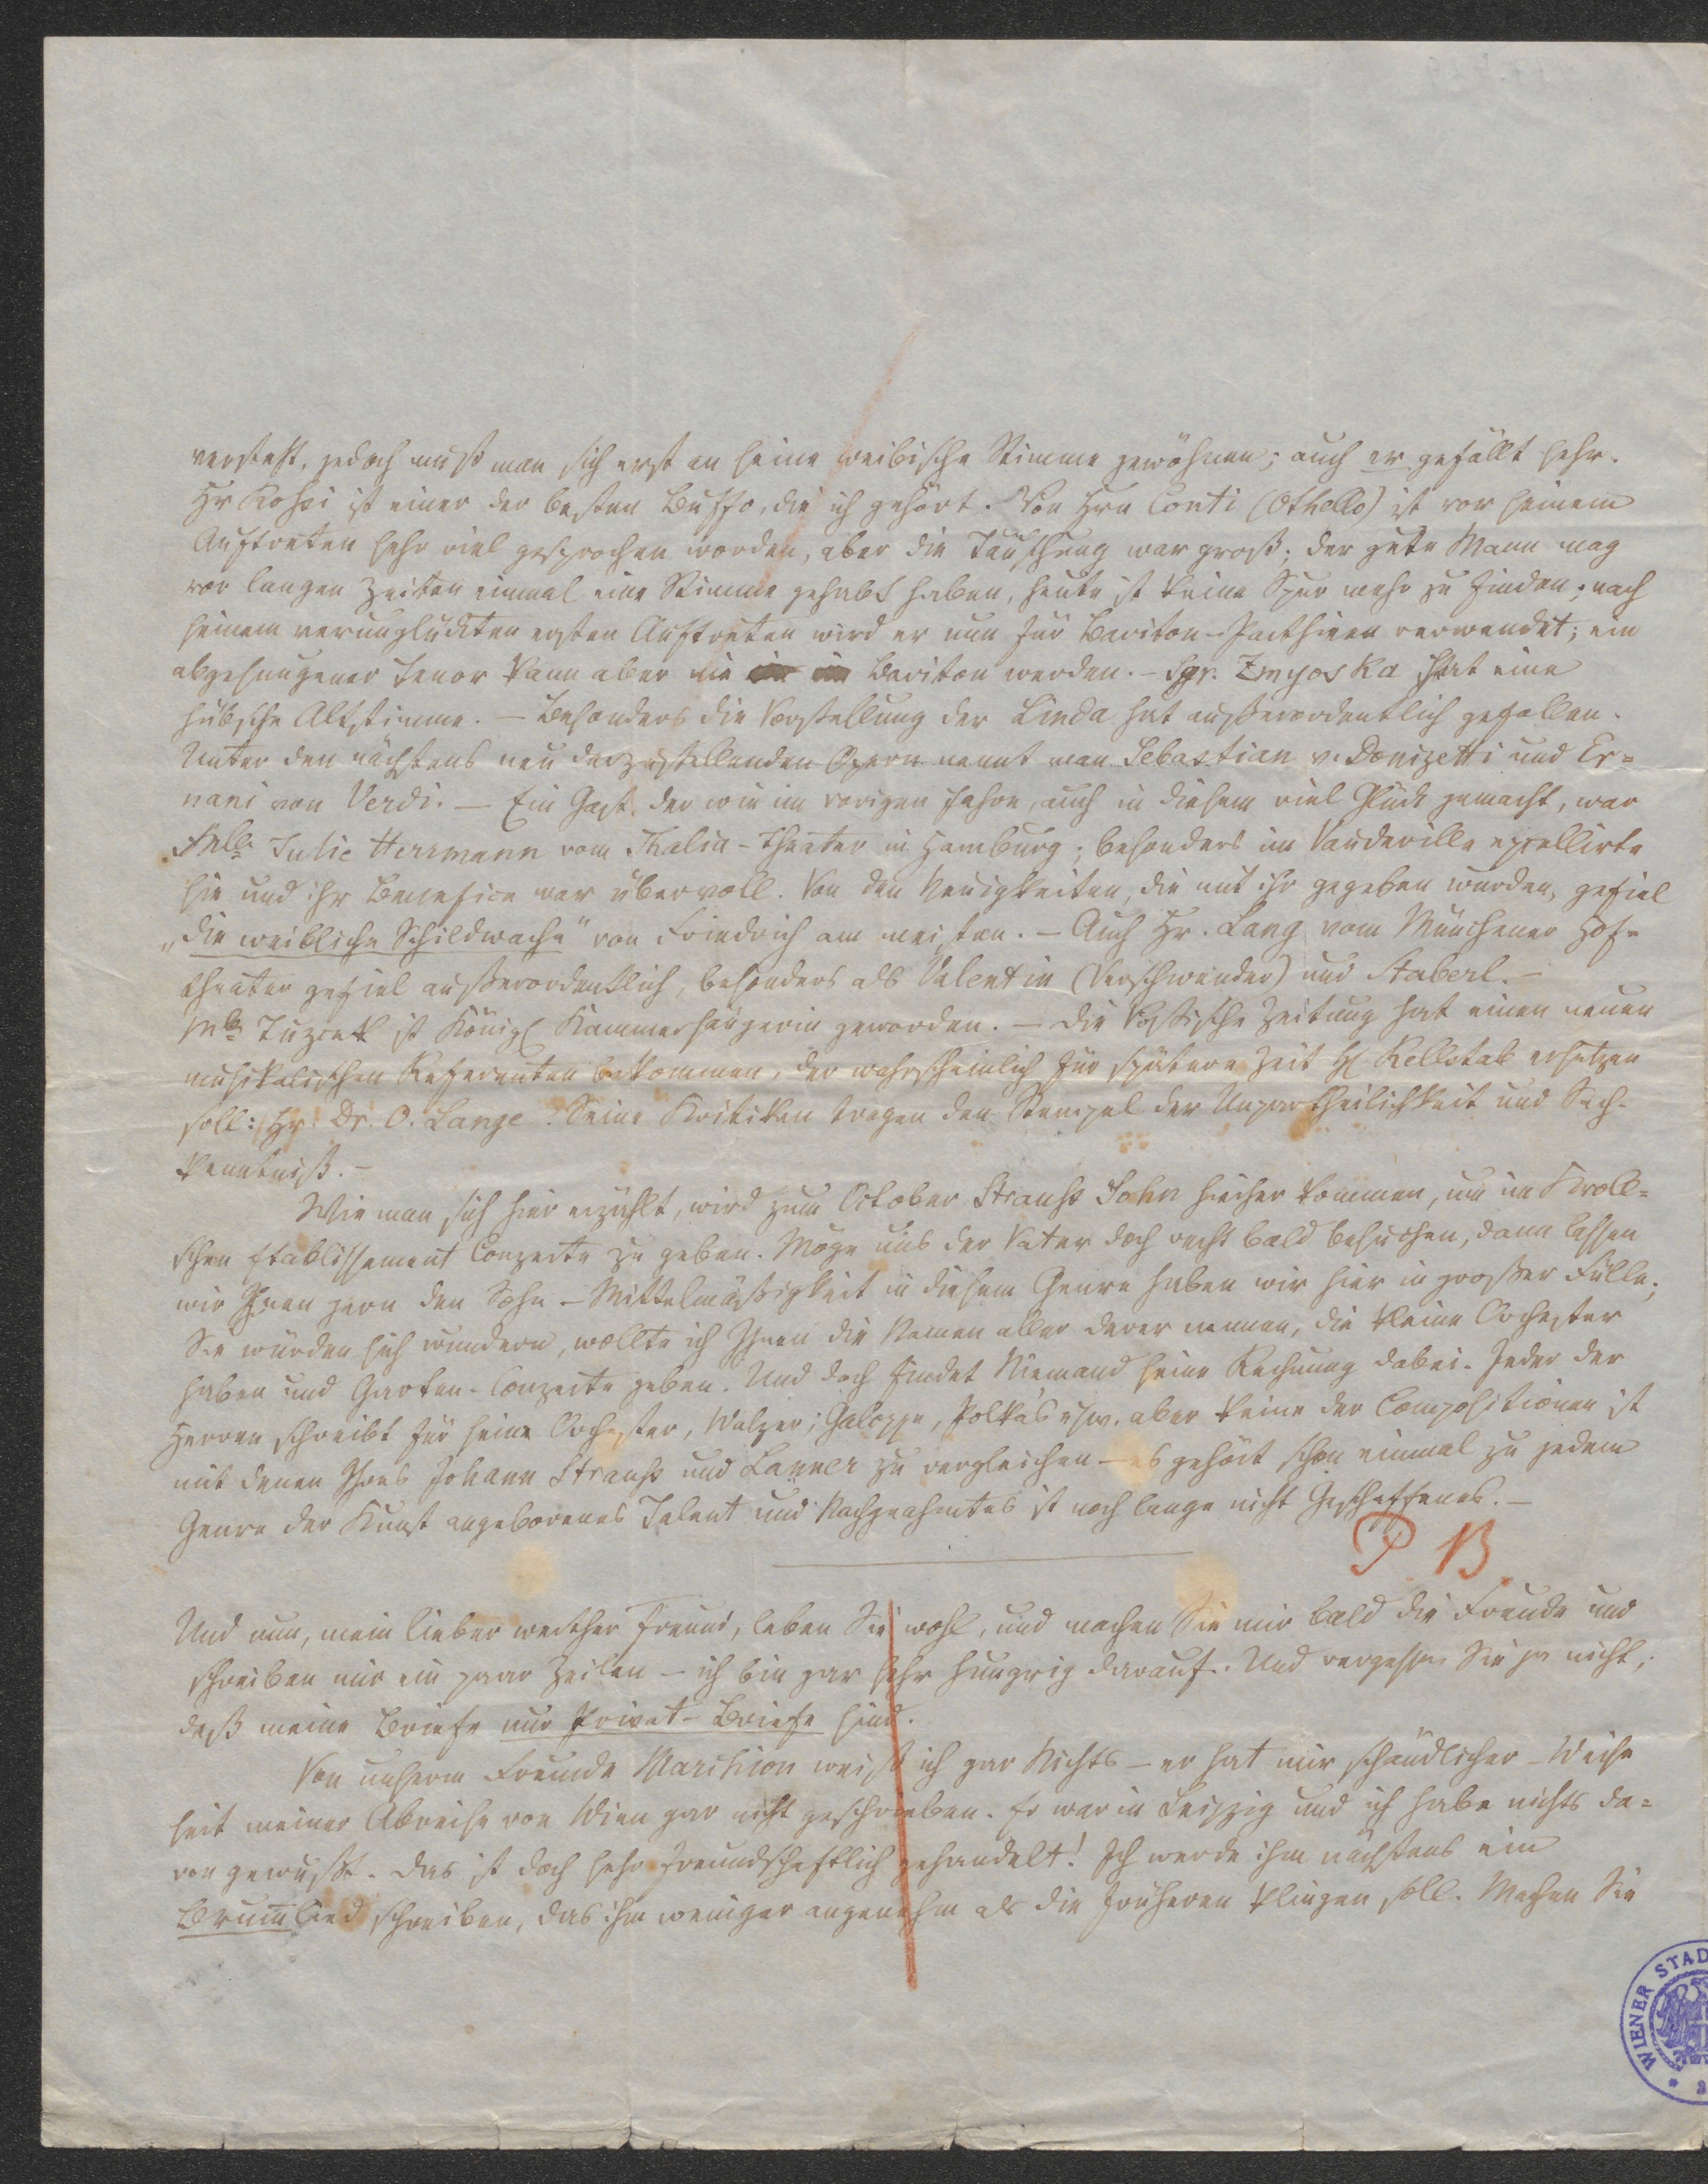 versteht, jedoch muß man sich erst an seine weibische Stimme gewöhnen; auch er gefällt sehr.
Hr Rossi ist einer der besten Buffo, die ich gehört. Von Hrn Conti (Othello) ist vor seinem
Auftreten sehr viel gesprochen worden, aber die Täuschung war groß; der gute Mann mag
vor langen Zeiten einmal eine Stimme gehabt haben, heute ist keine Spur mehr zu finden; nach
seinem verunglückten ersten Auftreten wird er nun für Bariton-Parthieen verwendet; ein
abgesungener Tenor kann aber nie Bariton werden. – Sgr. Zmyoska hat eine
hübsche Altstimme. – Besonders die Vorstellung der Linda hat außerordentlich gefallen.
Unter den nächstens neu darzustellenden Opern nennt man Sebastian v. Donizetti und Er=
nani von Verdi. – Ein Gast, der wie im vorigen Jahre, auch in diesem viel Glück gemacht, war
Mlle Julie Herrmann vom Thalia-Theater in Hamburg; besonders im Vaudeville exzellirte
sie und ihr Benefice war übervoll. Von den Neuigkeiten, die mit ihr gegeben wurden, gefiel
„die weibliche Schildwache" von Friedrich am meisten. – Auch Hr. Lang vom Münchener Hof=
theater gefiel außerordentlich, besonders als Valentin (Verschwender) und Staberl. –
Mlle Tuzcek ist Königl Kammersängerin geworden. – Die Vossische Zeitung hat einen neuen
musikalischen Referenten bekommen, der wahrscheinlich für spätere Zeit H Rellstab ersetzen
soll: Hr. Dr. O. Lange. Seine Kritiken tragen den Stempel der Unpartheilichkeit und Sach-
kenntniß. –
Wie man sich hier erzählt, wird zum October Strauß Sohn hierher kommen, um im Kroll=
schen Etablissement Conzerte zu geben. Möge uns der Vater doch recht bald besuchen, dann lassen
wir Ihnen gern den Sohn – Mittelmäßigkeit in diesem Genre haben wir hier in großer Fülle;
Sie würden sich wundern, wollte ich Ihnen die Namen aller derer nennen, die kleine Orchester
haben und Garten-Conzerte geben. Und doch findet Niemand seine Rechnung dabei. Jeder der
Herren schreibt für seine Orchester, Walzer, Galoppe, Polka's usw. aber keine der Compositionen ist
mit denen Ihres Johann Strauß und Lanner zu vergleichen – es gehört schon einmal zu jedem
Genre der Kunst angeborenes Talent und Nachgeahmtes ist noch lange nicht Geschaffenes. –
P B
Und nun, mein lieber werther Freund, leben Sie wohl, und machen Sie mir bald die Freude und
schreiben mir ein paar Zeilen – ich bin gar sehr hungrig darauf. Und vergessen Sie ja nicht,
daß meine Briefe nur Privat-Briefe sind.
Von unserm Freunde Marchion weiß ich gar Nichts – er hat mir schändlicher-Weise
seit meiner Abreise von Wien gar nicht geschrieben. Er war in Leipzig und ich habe nichts da=
von gewußt. Das ist doch sehr freundschaftlich gehandelt! Ich werde ihm nächstens ein
Brummlied schreiben, das ihm weniger angenehm als die früheren klingen soll. Machen Sie
WIENER STAD